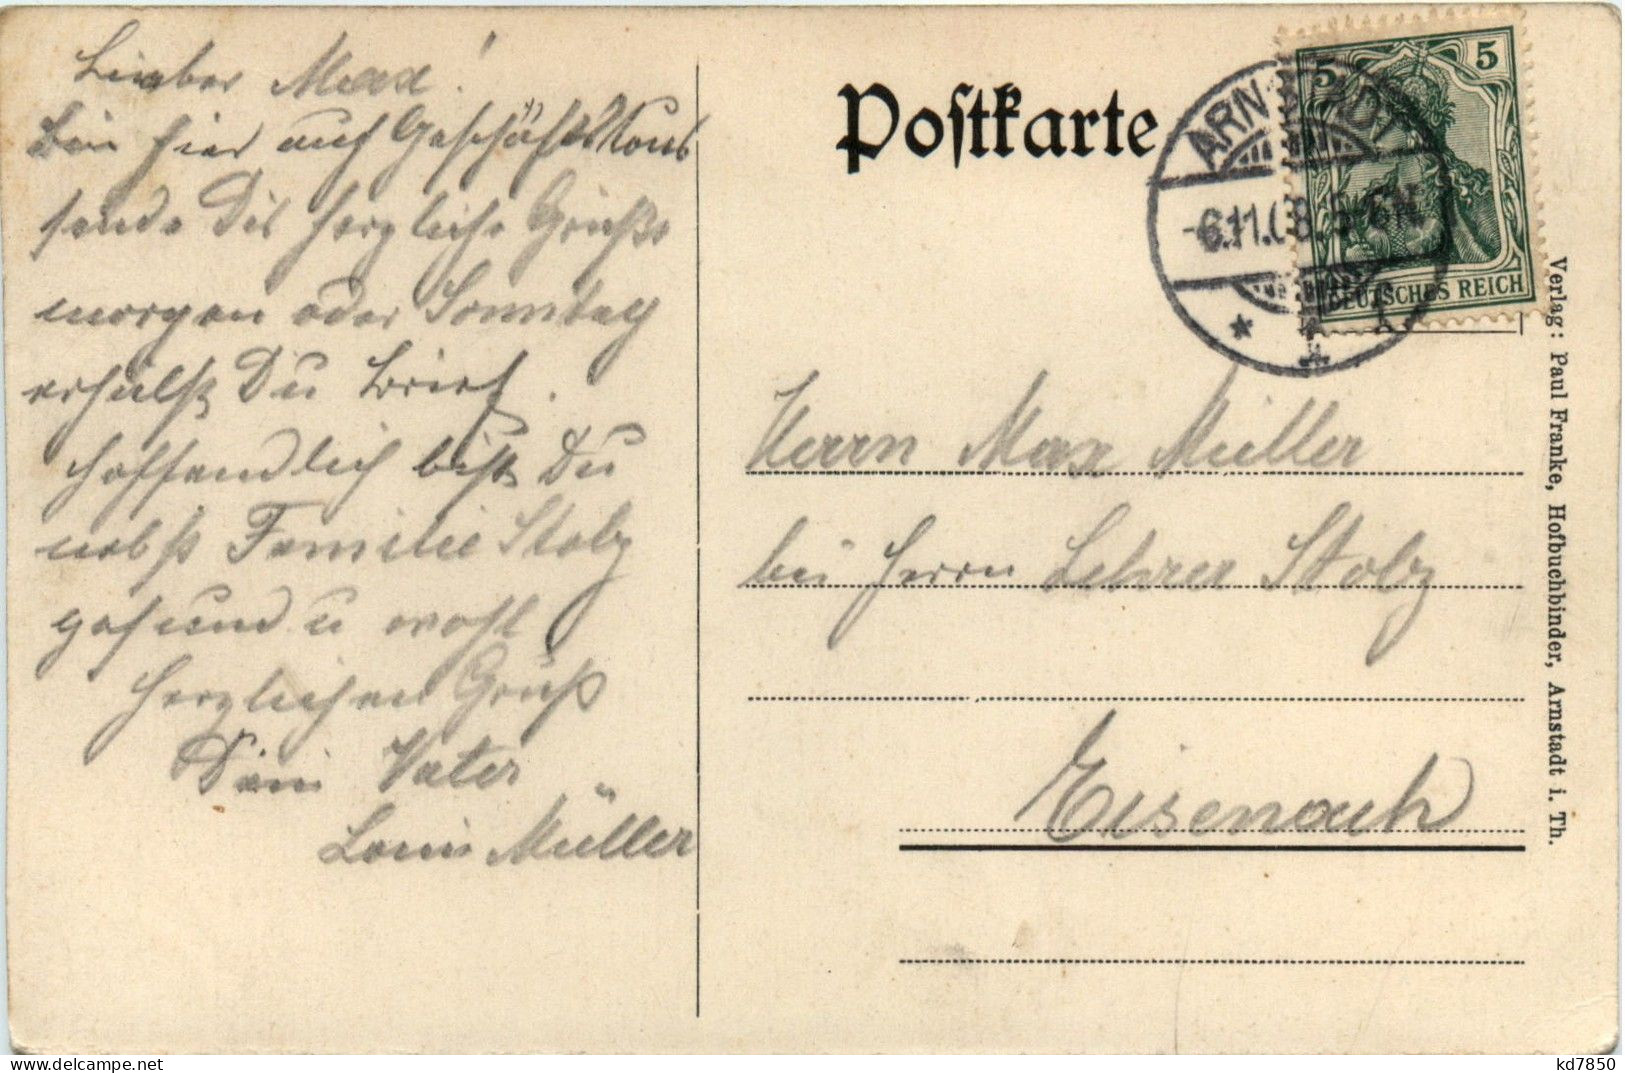 Lieber Max!
Bin hier auf Geschäfts
sende Dir herzliche Grüße
morgen oder Sonntag
erhälst Du Brief.
hoffendlich bist Du
nebst Familie Stolz
gesund u wohl
Herzlichen Gruß
Dein Vater
Louis Müller
Postkarte
ARNSTADT
-6.11.08. 5-6N
5 5
DEUTSCHES REICH
Herrn Max Müller
bei Herrn Lehrer Stolz
Eisenach
Verlag: Paul Franke, Hofbuchbinder, Arnstadt i. Th.
kd7850